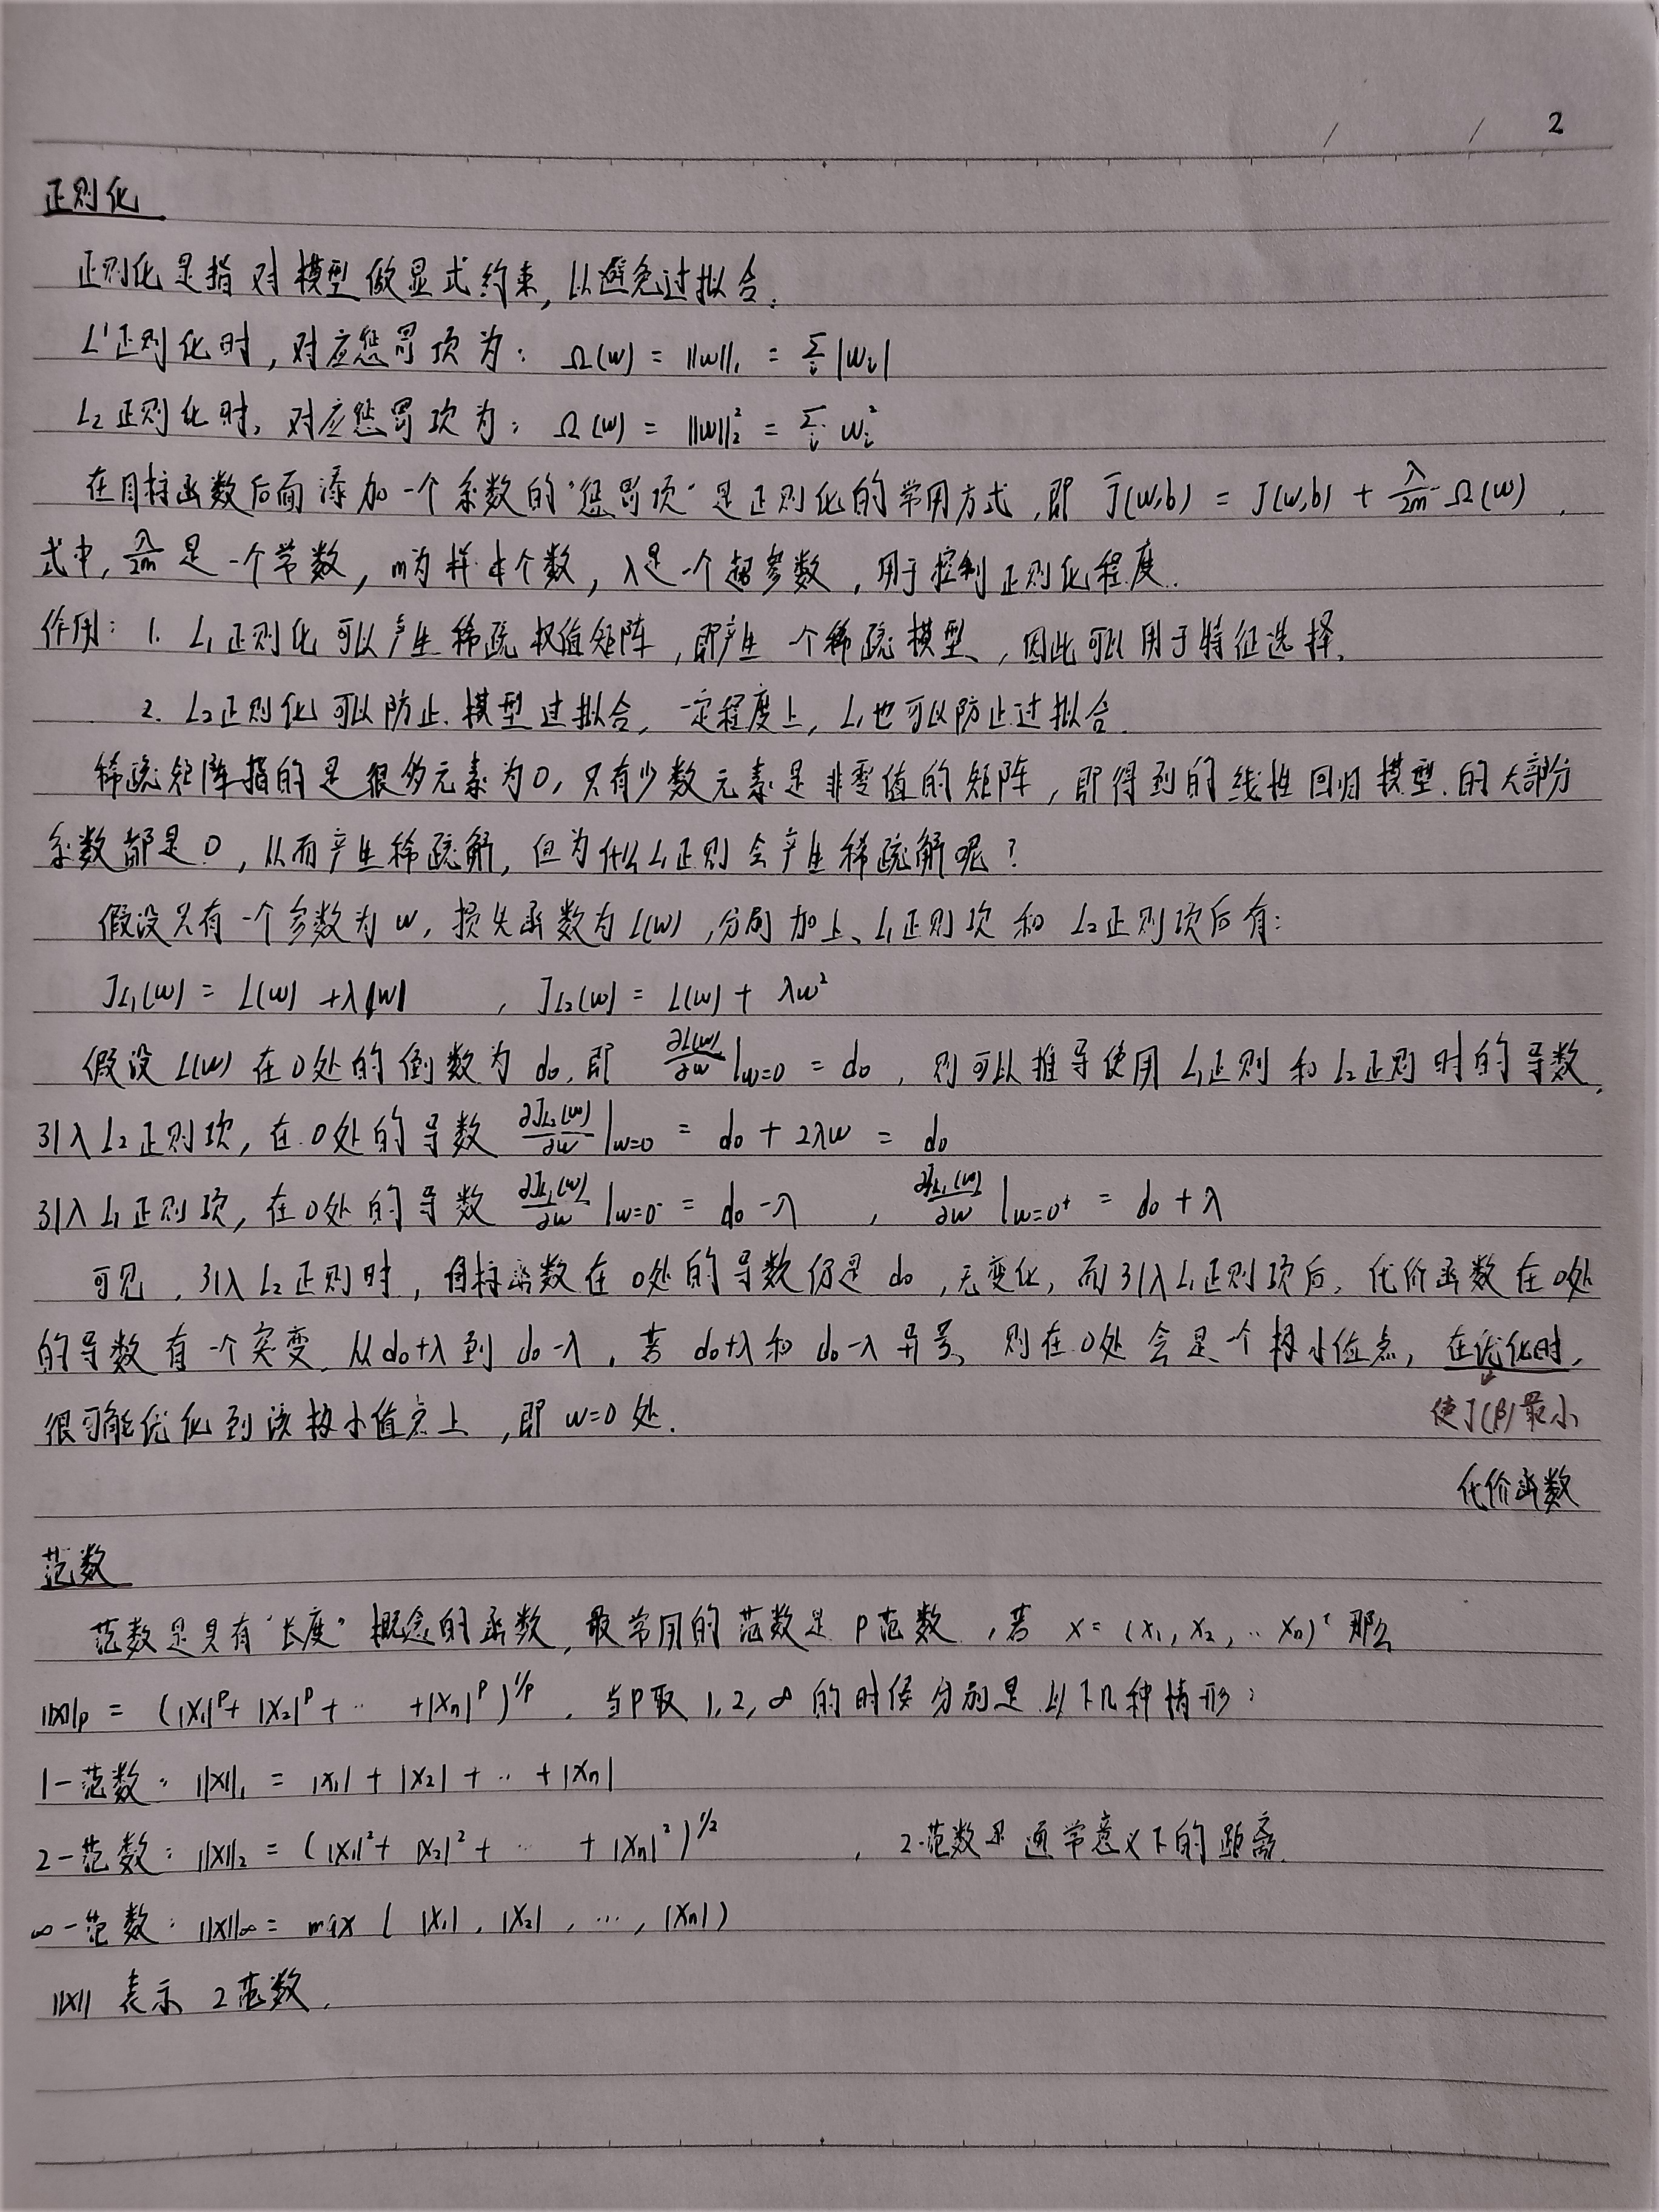 2
正则化
正则化是指对模型做显式约束,以避免过拟合.
L1正则化时,对应惩罚项为: Ω(w) = ||w||₁ = Σᵢ |wᵢ|
L₂正则化时,对应惩罚项为: Ω(w) = ||w||₂² = Σᵢ wᵢ²
在目标函数后面添加一个系数的“惩罚项”是正则化的常用方式,即 J̃(w,b) = J(w,b) + λ/2m Ω(w),
式中, λ/2m 是一个常数, m为样本个数, λ是一个超参数,用于控制正则化程度.
作用: 1. L₁正则化可以产生稀疏权值矩阵,即产生一个稀疏模型,因此可以用于特征选择.
2. L₂正则化可以防止模型过拟合,一定程度上, L₁也可以防止过拟合.
稀疏矩阵指的是很多元素为0,只有少数元素是非零值的矩阵,即得到的线性回归模型的大部分
系数都是0,从而产生稀疏解,但为什么L₁正则会产生稀疏解呢?
假设只有一个参数为w,损失函数为L(w),分别加上L₁正则项和L₂正则项后有:
J_L₁(w) = L(w) + λ|w| , J_L₂(w) = L(w) + λw²
假设L(w)在0处的倒数为d₀,即 ∂L(w)/∂w |w=0 = d₀ ,则可以推导使用L₁正则和L₂正则时的导数.
引入L₂正则项,在0处的导数 ∂J_L₂(w)/∂w |w=0 = d₀ + 2λw = d₀
引入L₁正则项,在0处的导数 ∂J_L₁(w)/∂w |w=0⁻ = d₀ - λ , ∂J_L₁(w)/∂w |w=0⁺ = d₀ + λ
可见,引入L₂正则时,目标函数在0处的导数仍是d₀,无变化,而引入L₁正则项后,代价函数在0处
的导数有一个突变.从d₀+λ到d₀-λ,若d₀+λ和d₀-λ异号,则在0处会是一个极小值点,在优化时,
很可能优化到该极小值点上,即w=0处.
使J(β)最小
代价函数
范数
范数是具有“长度”概念的函数,最常用的范数是P范数,若 x = (x₁, x₂, ·· xₙ)ᵀ 那么
||x||ₚ = (|x₁|ᵖ + |x₂|ᵖ + ·· + |xₙ|ᵖ)^1/p . 当P取1,2,∞的时候分别是以下几种情形:
1-范数: ||x||₁ = |x₁| + |x₂| + ·· + |xₙ|
2-范数: ||x||₂ = (|x₁|² + |x₂|² + ·· + |xₙ|²)^1/2 , 2-范数是通常意义下的距离.
∞-范数: ||x||∞ = max ( |x₁|, |x₂|, ···, |xₙ|)
||x|| 表示2范数.